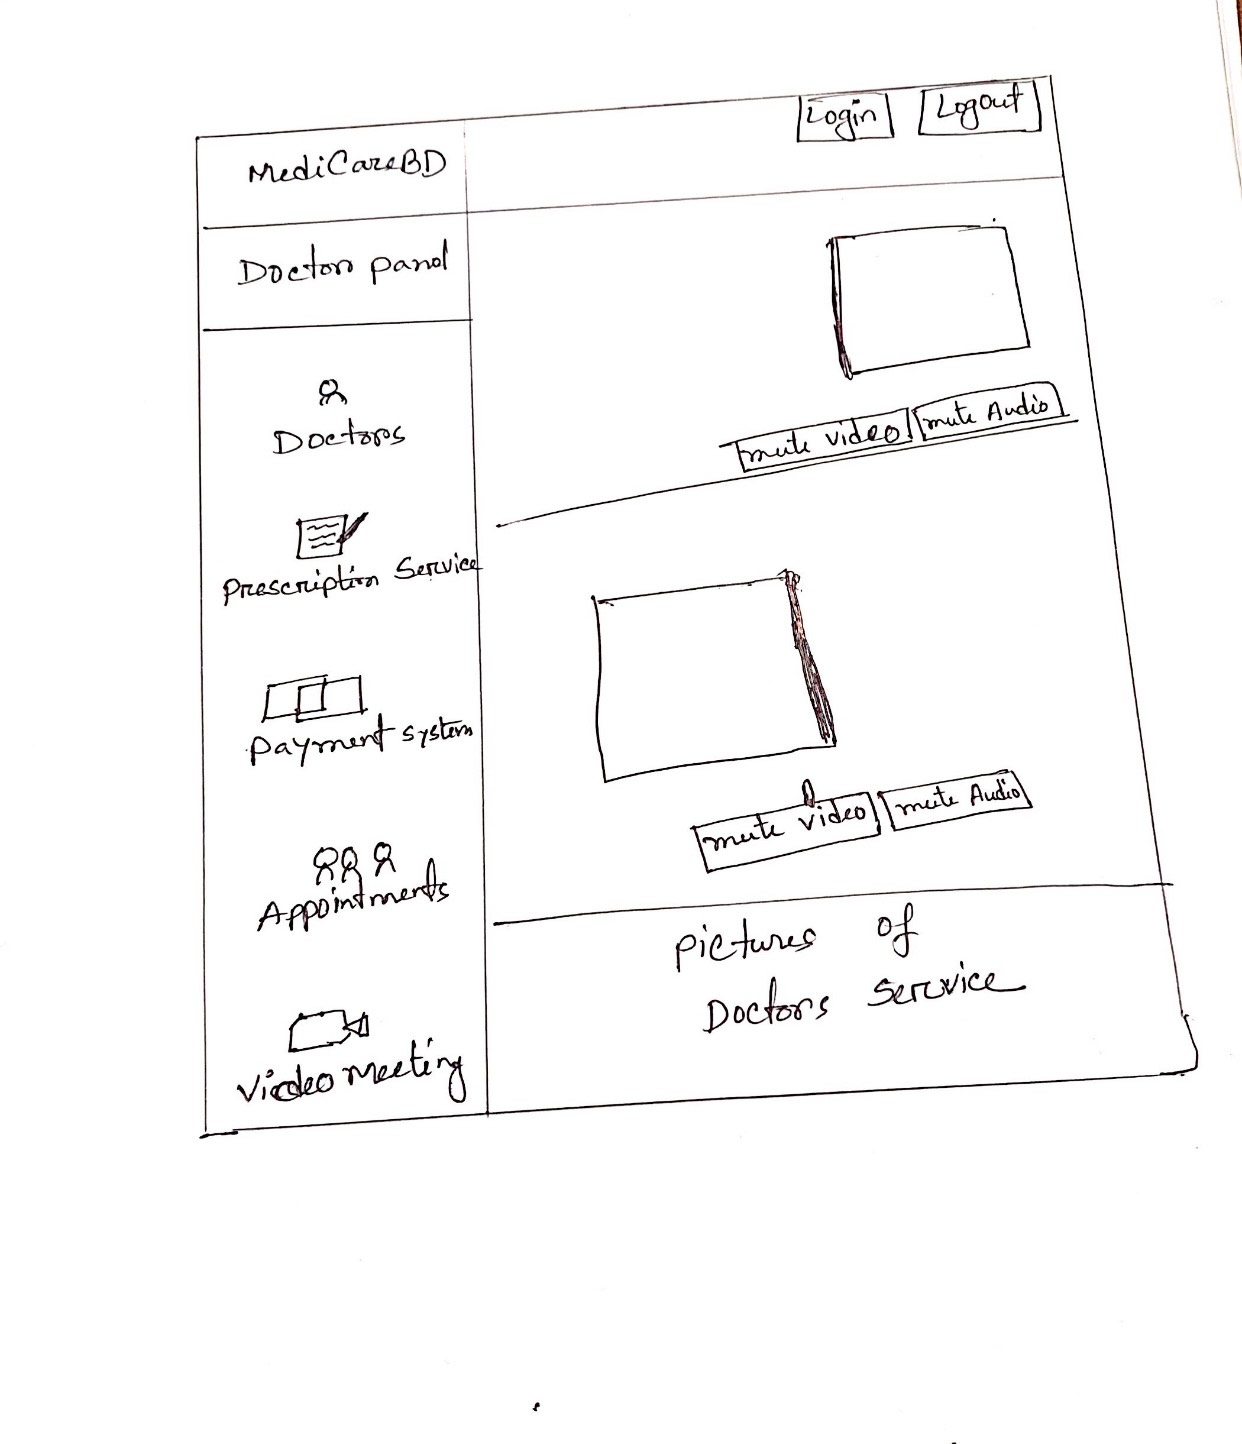 Login Logout
MediCareBD
Doctor panel
Doctors
Prescription Service
Payment system
Appointments
Video Meeting
mute video mute Audio
mute video mute Audio
pictures of
Doctors Service